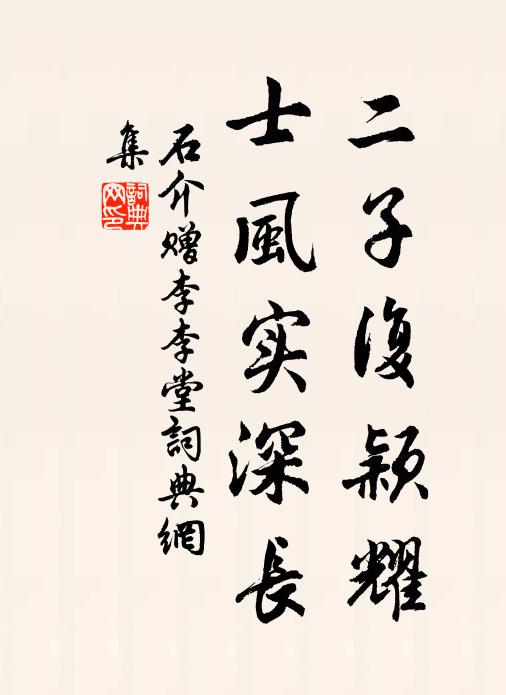 二子復颖耀
士風实深長
石介赠李李堂詞典網
集
詞典网印